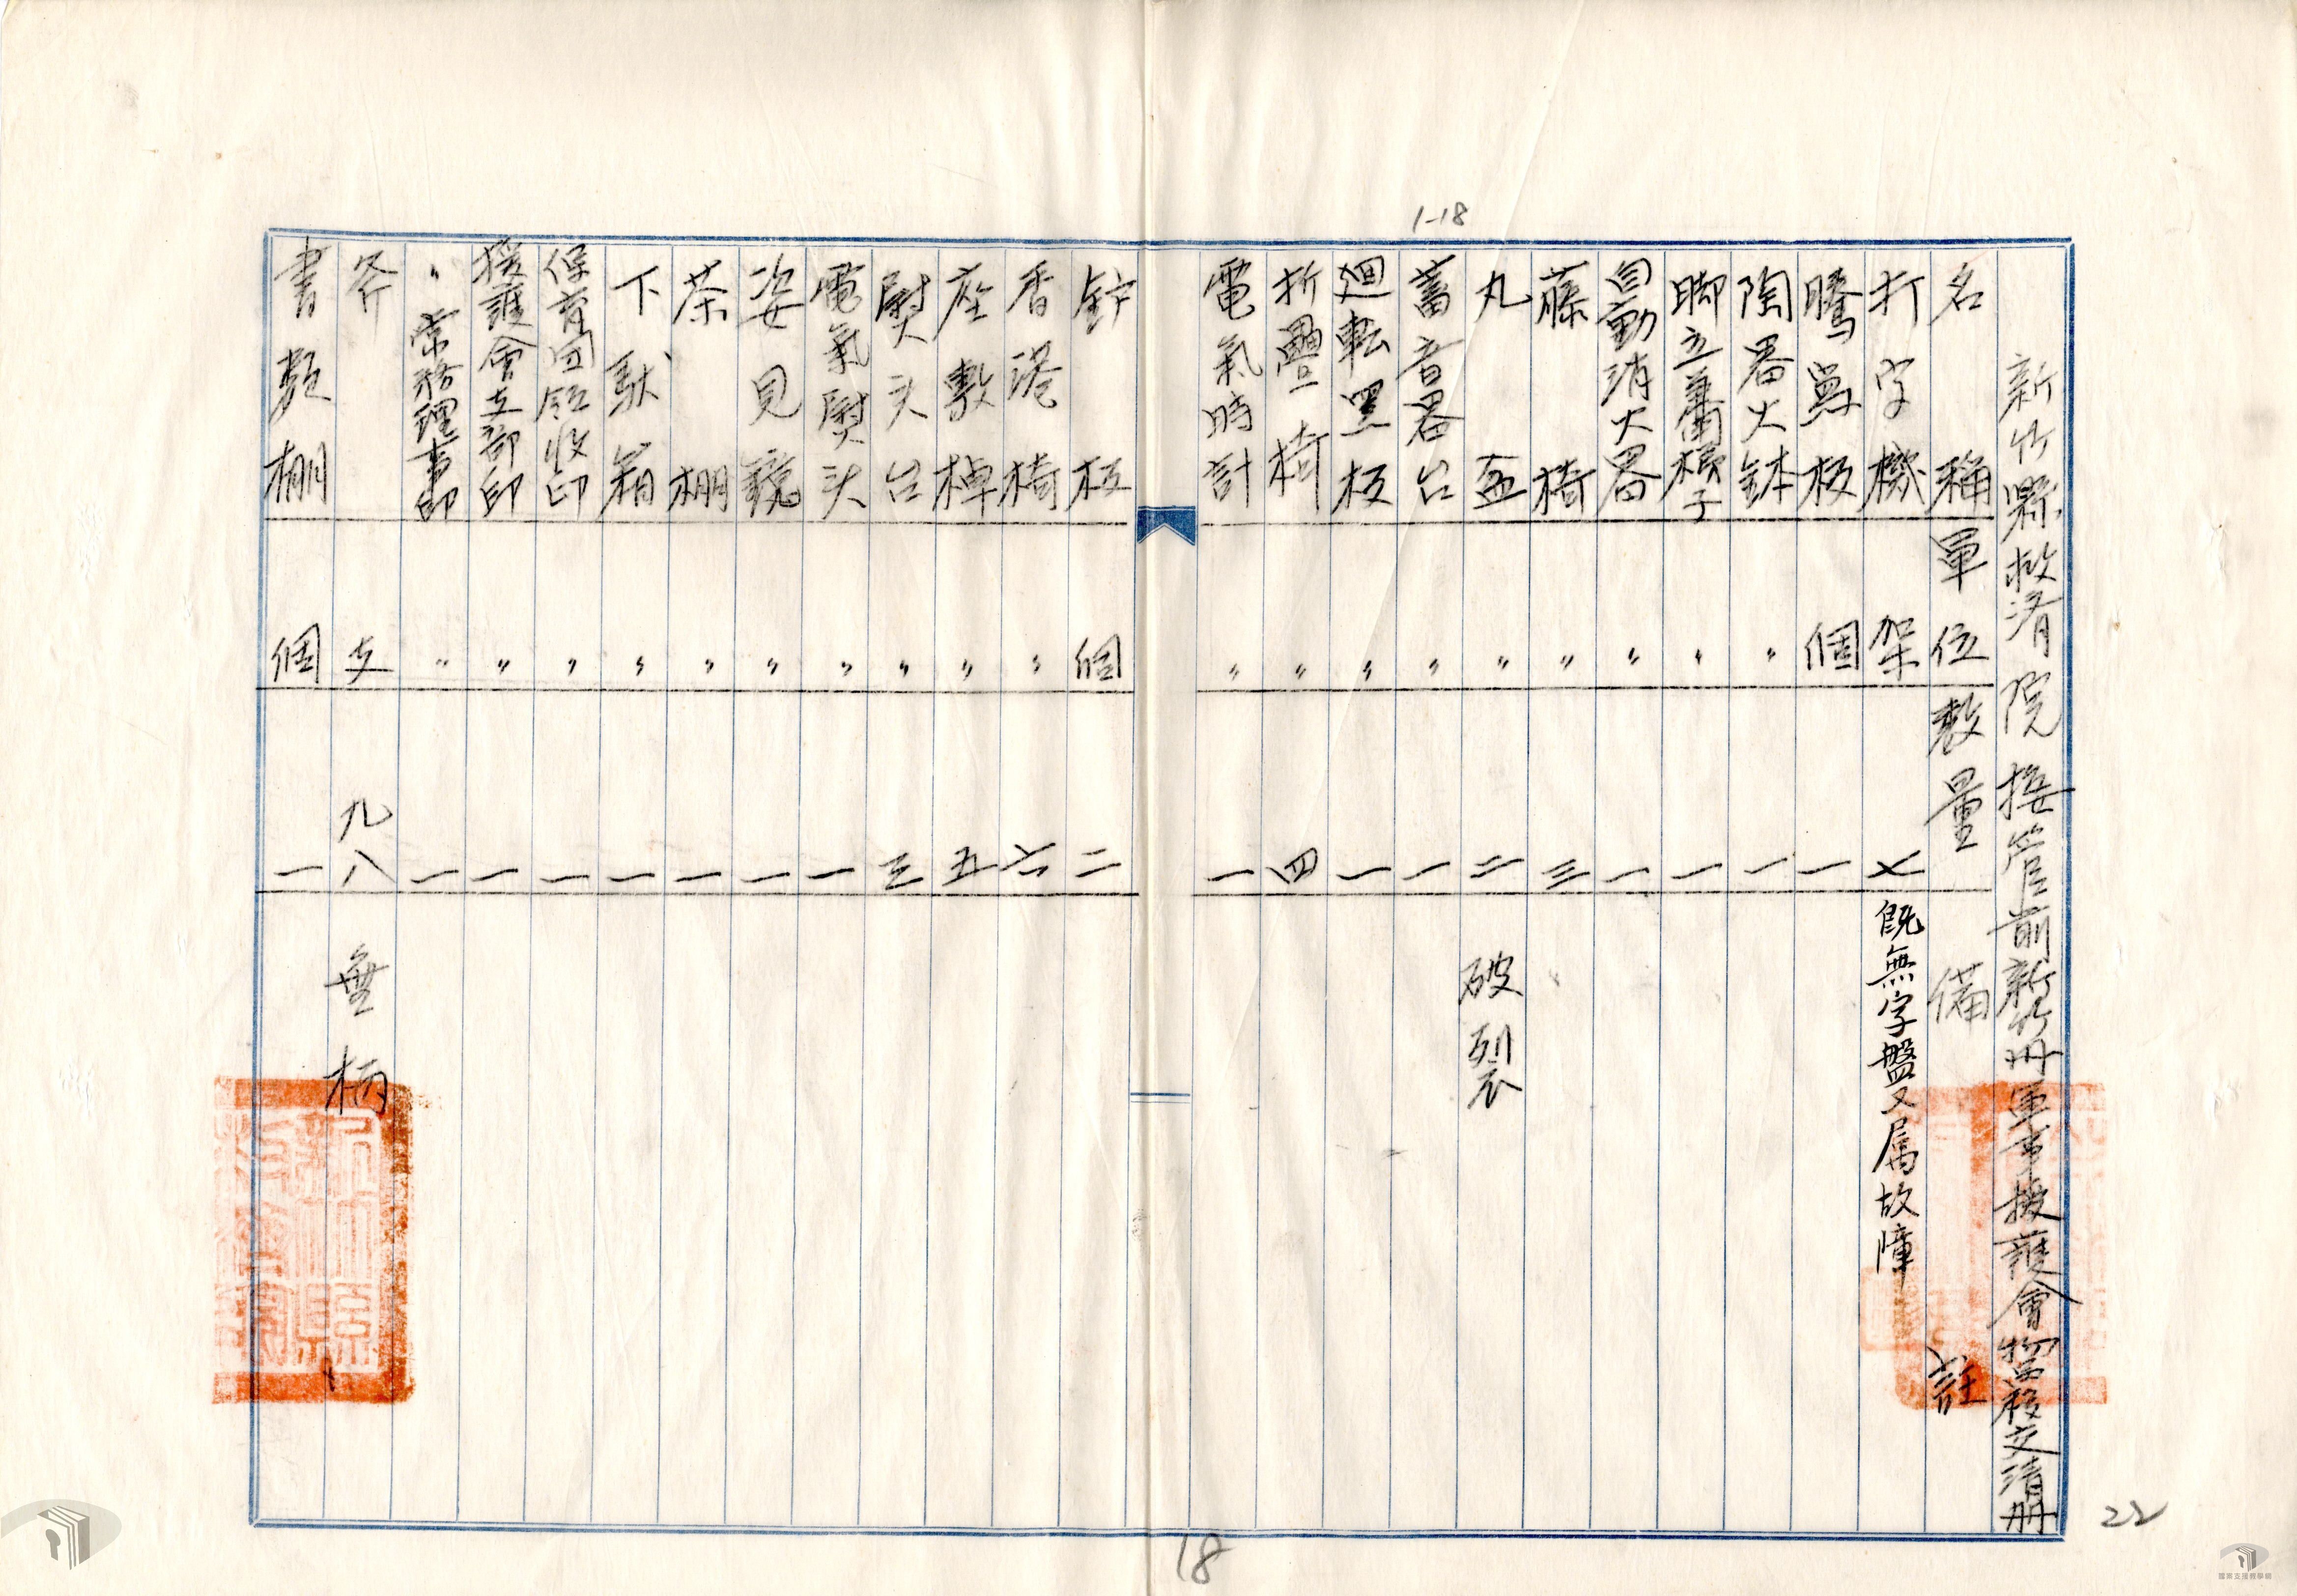 1-18
新竹縣救済院接管前新竹州軍事援護會物品移交清册
名稱 單位 数量 備註
打字機 架 七 既無字盤又属故障
騰寫板 個 一
陶器火鉢 〃 一
脚立兼用梯子 〃 一
自動消火器 〃 一
藤椅 〃 三
丸盃 〃 二 破裂
蓄音器台 〃 一
廻転黑板 〃 一
折疊椅 〃 四
電氣時計 〃 一
鈩板 個 二
香港椅 〃 六
座敷棹 〃 五
熨斗台 〃 三
電氣熨斗 〃 一
姿見鏡 〃 一
茶棚 〃 一
下馱箱 〃 一
保育园領收印 〃 一
援護會支部印 〃 一
〃常務理事印 〃 一
斧 支 九八 無柄
書類棚 個 一
18
22